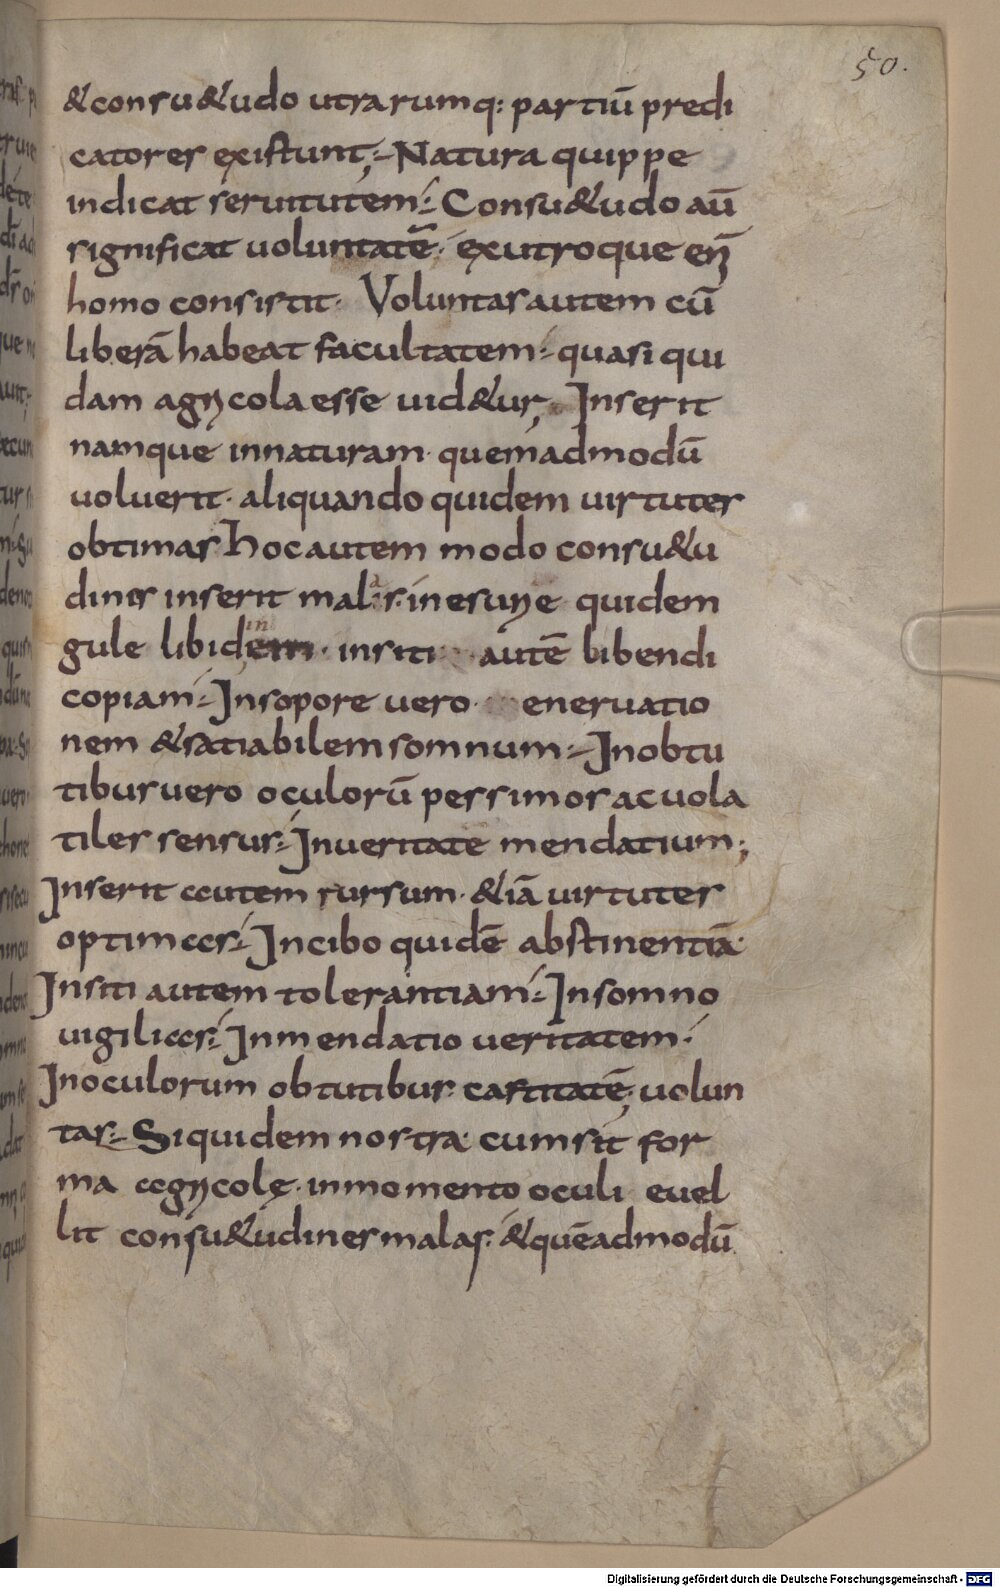 50.
&consu&udo utrarumq: partiū predi
catores existunt;- Natura quippe
indicat seruitutem:- Consu&udo aū
significat uoluntatē· exutroque enī
homo consistit· Voluntas autem cū
liberā habeat facultatem:- quasi qui
dam agricola esse uid&ur; Inserit
namque innaturam· quemadmodū
uoluerit· aliquando quidem uirtutes
obtimas Hoc autem modo consu&u
dines inserit malas· inesurie quidem
gule libidinem· insiti autē bibendi
copiam:- Insopore uero· eneruatio
nem &satiabilem somnum:- Inobtu
tibus uero oculorū pessimos ac uola
tiles sensus:- Inueritate mendatium;
Inserit autem rursum· &iā uirtutes
optimas:- Incibo quidē abstinentiā·
Insiti autem tolerantiam:- Insomno
uigilias:- Inmendatio ueritatem:-
Inoculorum obtutibus castitatē; uolun
tas:- Siquidem nostra cumsit for
ma agricolę· inmomento oculi euel
lit consu&udines malas: &quēadmodū
Digitalisierung gefördert durch die Deutsche Forschungsgemeinschaft - DFG